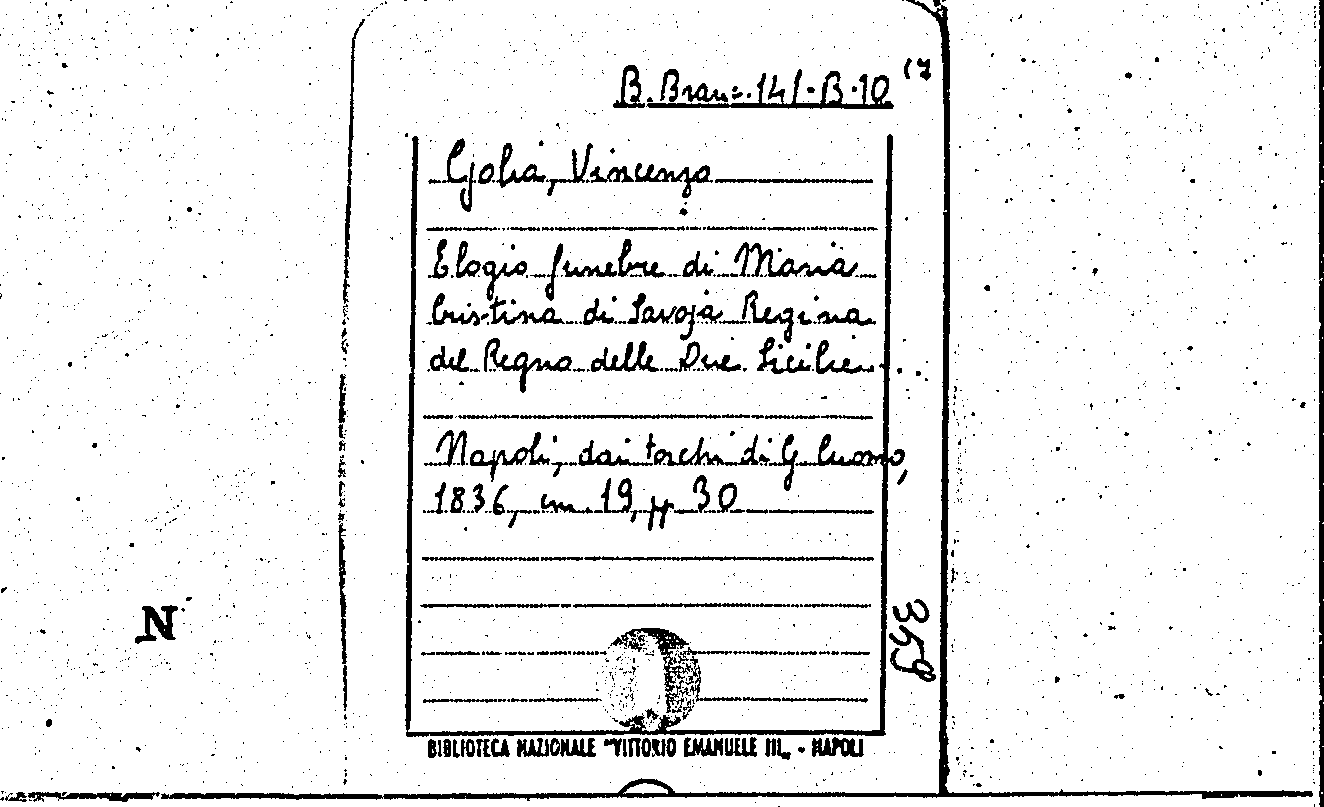 B. Branc. 141-B-10 (7
Golia, Vincenzo
Elogio funebre di Maria
Cristina di Savoja Regina
del Regno delle Due Sicilie...
Napoli, dai torchi di G. Cuomo,
1836, cm. 19, pp. 30
N
359
BIBLIOTECA NAZIONALE "VITTORIO EMANUELE III„ - NAPOLI